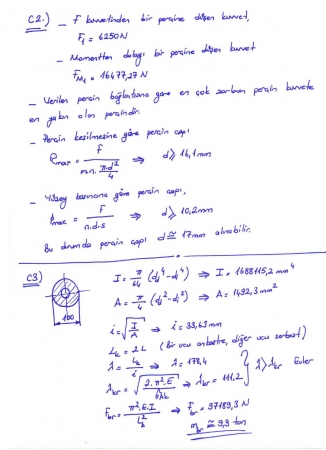 C2.) — F kuvvetinden bir perçine düşen kuvvet,
F₁ = 6250 N
— Momentten dolayı bir perçine düşen kuvvet
F_M₁ = 16477,27 N
— Verilen perçin bağlantısına göre en çok zorlanan perçin kuvvete
en yakın olan perçindir.
— Perçin kesilmesine göre perçin çapı
τmax = F / (m.n. π.d²/4) ⇒ d ≥ 16,1 mm
— Yüzey basıncına göre perçin çapı,
Pmax = F / (n.d.s) ⇒ d ≥ 10,2 mm
Bu durumda perçin çapı d ≅ 17 mm alınabilir.
C3)
100
I = π/64 (d⁴ - dᵢ⁴) ⇒ I = 1688115,2 mm⁴
A = π/4 (d² - dᵢ²) ⇒ A = 1492,3 mm²
i = √(I/A) ⇒ i = 33,63 mm
Lk = 2L (Bir ucu ankastre, diğer ucu serbest)
λ = Lk/i ⇒ λ = 178,4
λkr = √(2.π².E/) ⇒ λkr = 111,2 } λ > λkr Euler
Fkr = π².E.I / Lk² ⇒ Fkr = 97189,3 N
mkr ≅ 9,9 ton